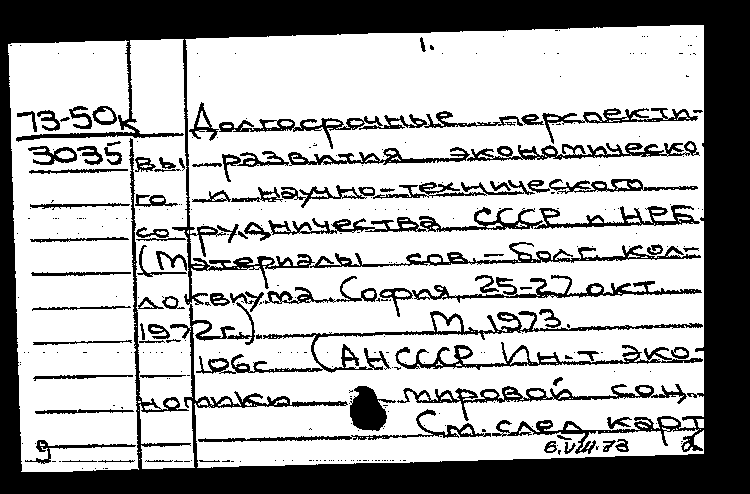 1.
73-50к Долгосрочные перспекти-
3035 вы развития экономическо
го и научно-технического
сотрудничества СССР и НРБ.
(Материалы сов.-болг. кол-
локвиума София, 25-27 окт.
1972г.) М., 1973.
106с (АН СССР, Ин-т эко-
номики мировой соц
См. след карт
9 6.VIII.73